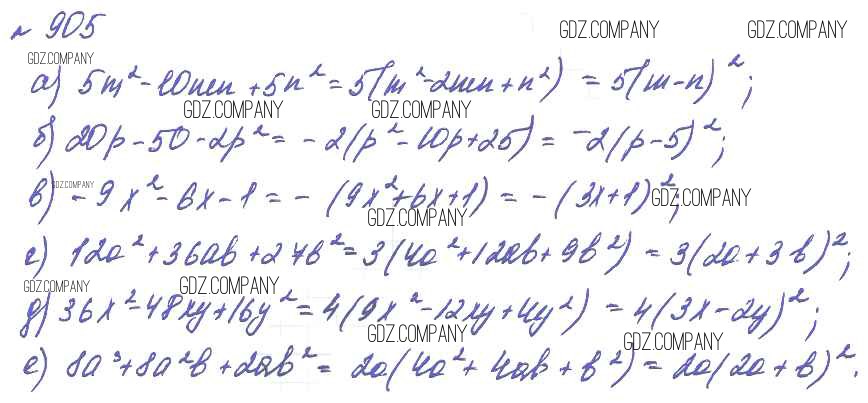 № 905
GDZ.COMPANY GDZ.COMPANY
GDZ.COMPANY
а) 5m² - 10mn + 5n² = 5(m² - 2mn + n²) = 5(m - n)²;
GDZ.COMPANY GDZ.COMPANY
б) 20p - 50 - 2p² = -2(p² - 10p + 25) = -2(p - 5)²;
GDZ.COMPANY
в) -9x² - 6x - 1 = -(9x² + 6x + 1) = -(3x + 1)²;
GDZ.COMPANY
GDZ.COMPANY
г) 12a² + 36ab + 27b² = 3(4a² + 12ab + 9b²) = 3(2a + 3b)²;
GDZ.COMPANY GDZ.COMPANY
д) 36x² - 48xy + 16y² = 4(9x² - 12xy + 4y²) = 4(3x - 2y)²;
GDZ.COMPANY GDZ.COMPANY
е) 8a³ + 8a²b + 2ab² = 2a(4a² + 4ab + b²) = 2a(2a + b)².